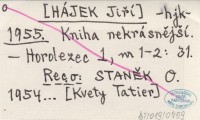 [HÁJEK Jiří] -hjk-
1955. Kniha nekrásnější.
- Horolezec 1, No 1-2: 31.
Rego: STANĚK O.
1954... [Kvety Tatier]